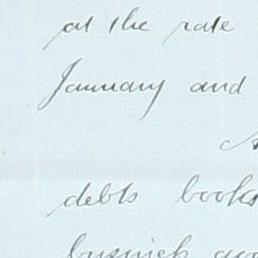 at the rate
January and
debts books
business goo